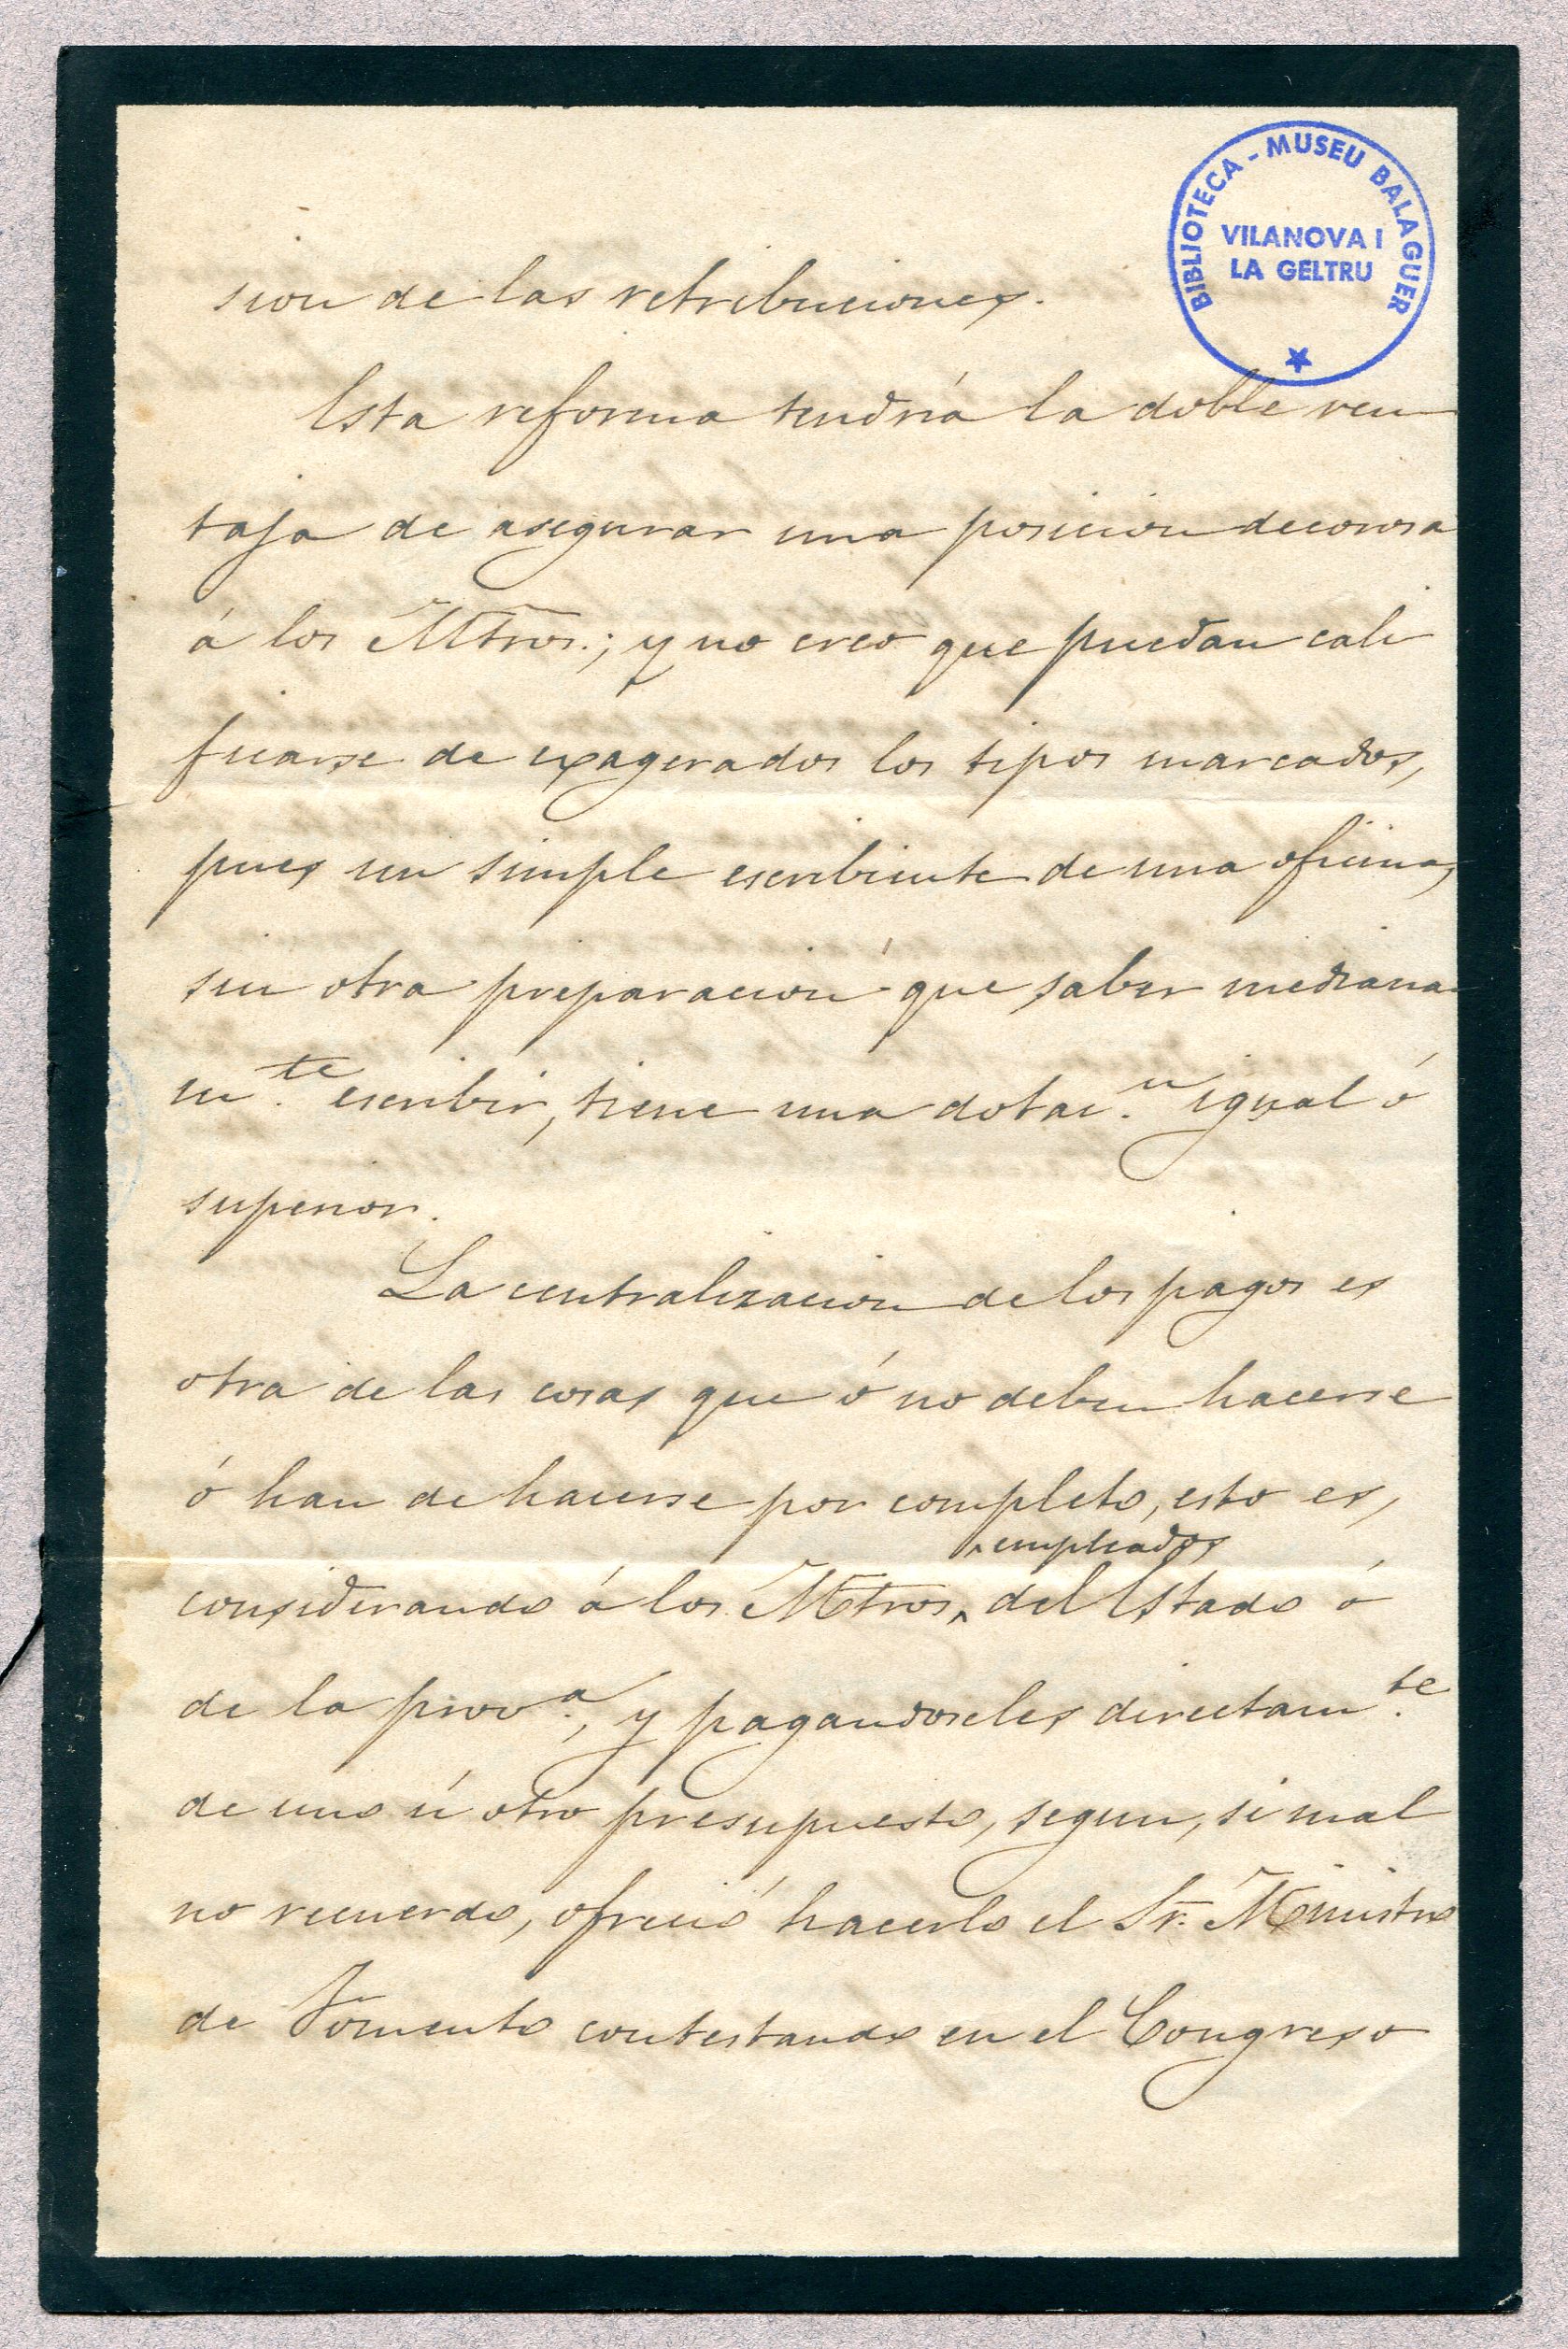 BIBLIOTECA - MUSEU BALAGUER
VILANOVA I
LA GELTRU
sion de las retribuciones.
Esta reforma tendría la doble ven
taja de asegurar una posicion decorosa
á los Mtros.; y no creo que puedan cali
ficarse de exagerados los tipos marcados,
pues un simple escribiente de una oficina,
sin otra preparación que saber mediana-
m.te escribir, tiene una dotac.n igual ó
superior.
La centralizacion de los pagos es
otra de las cosas que ó no deben hacerse
ó han de hacerse por completo, esto es,
empleados
considerando á los Mtros. del Estado ó
de la prov.a, y pagandoseles directam.te
de uno ú otro presupuesto, segun, si mal
no recuerdo, ofreció hacerlo el Sr. Ministro
de Fomento contestando en el Congreso